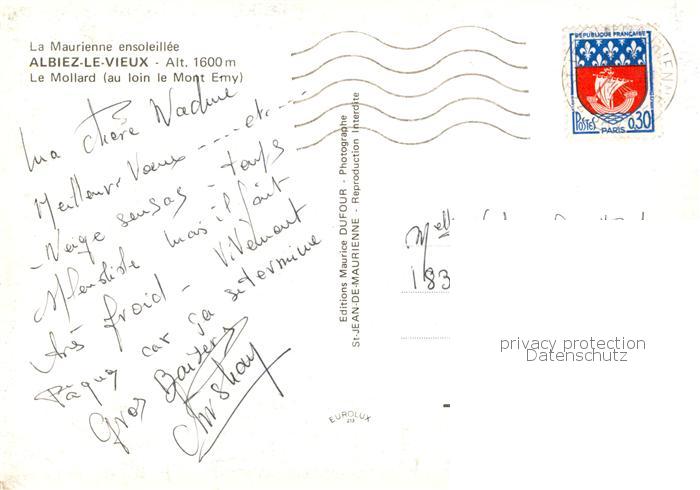 La Maurienne ensoleillée
ALBIEZ-LE-VIEUX - Alt. 1600 m
Le Mollard (au loin le Mont Emy)
Ma chère Nadine
Meilleurs Voeux ---- et ----
- Neige sensas - temps
splendide mais il fait
très froid - Vivement
Pâques car ça se termine
Gros Baisers
Editions Maurice DUFOUR - Photographe
St-JEAN-DE-MAURIENNE - Reproduction Interdite
EUROLUX
REPUBLIQUE FRANÇAISE
POSTES
0,30
PARIS
Melle
183
privacy protection
Datenschutz